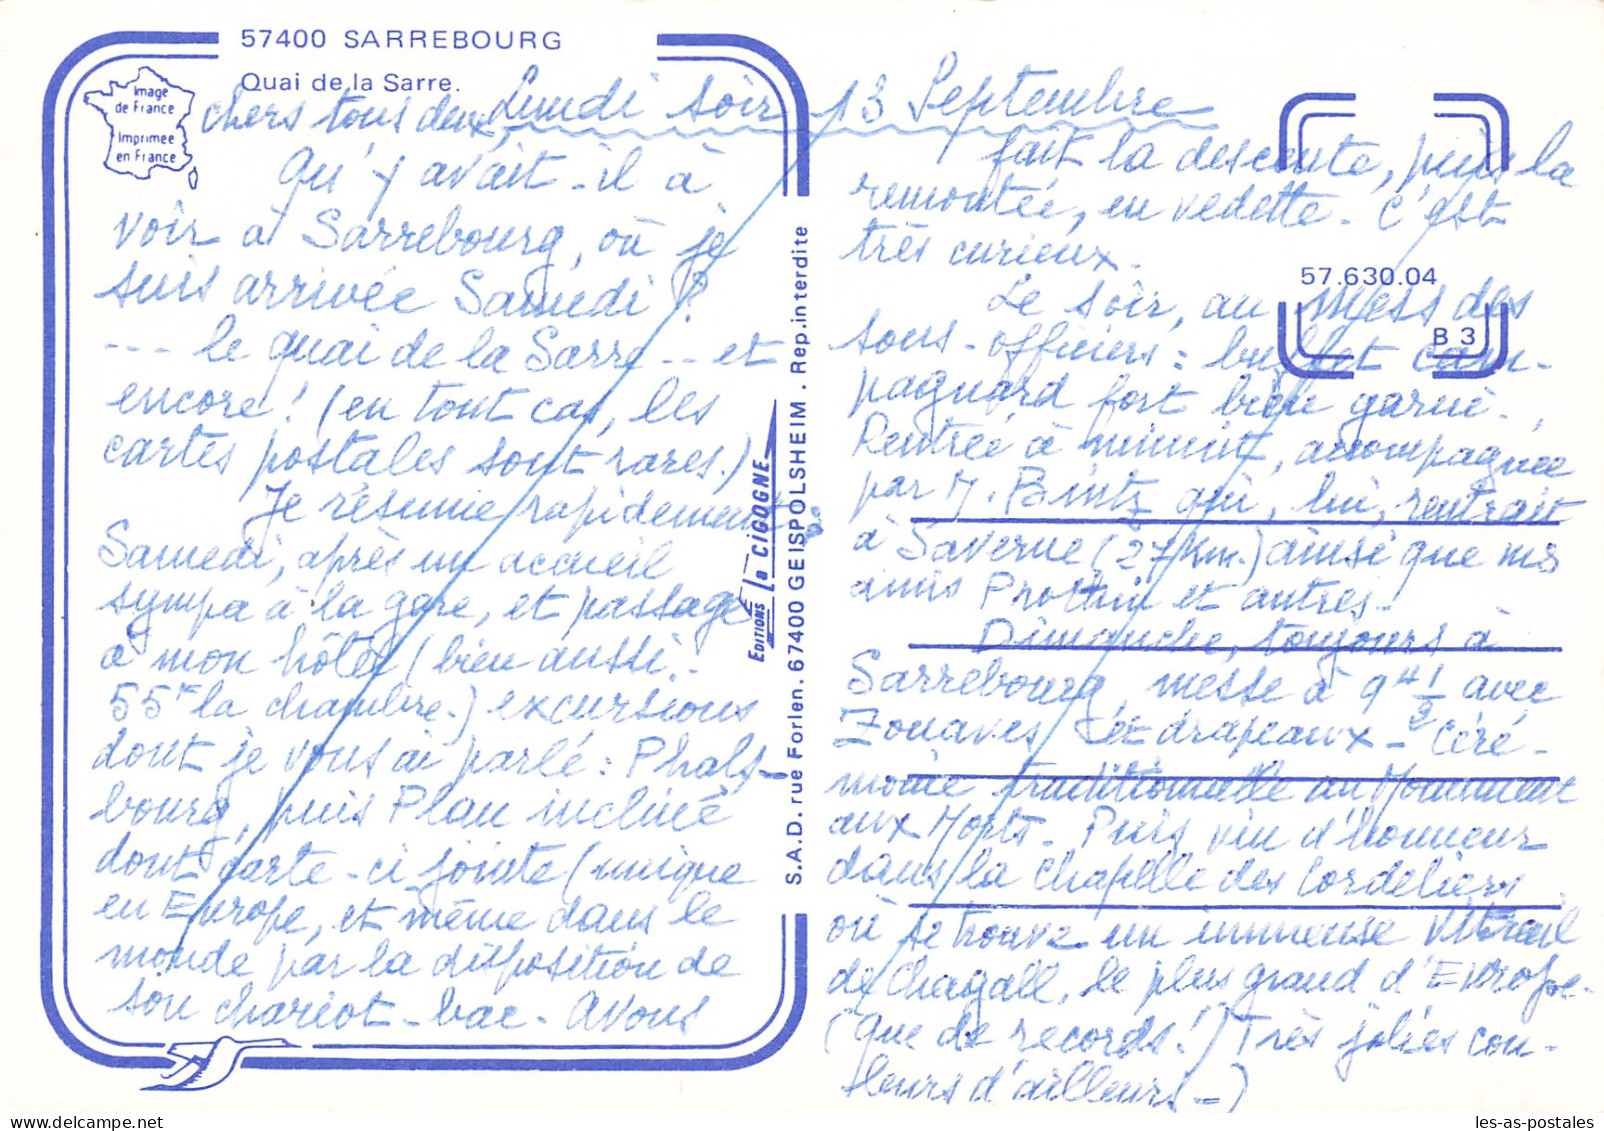 57400 SARREBOURG
Quai de la Sarre.
Image
de France
Imprimée
en France
Lundi soir 13 Septembre
chers tous deux,
Qu'y avait-il à
voir à Sarrebourg, où je
suis arrivée Samedi ?
--- le quai de la Sarre -- et
encore ! (en tout cas, les
cartes postales sont rares.)
Je résume rapidement :
Samedi, après un accueil
sympa à la gare, et passage
à mon hôtel (bien aussi -
55F la chambre.) excursions
dont je vous ai parlé : Phals-
bourg, puis Plan incliné
dont carte-ci jointe (unique
en Europe, et même dans le
monde par la disposition de
son chariot-bac - Avons
Editions la CIGOGNE
S.A.D. rue Forlen. 67400 GEISPOLSHEIM . Rep.interdite
57.630.04
B 3
fait la descente, puis la
remontée, en vedette - C'est
très curieux.
Le soir, au mess des
sous-officiers : buffet cam-
pagnard fort bien garni -
Rentrée à minuit, accompagnée
par M. Bintz qui, lui, rentrait
à Saverne (27 km.) ainsi que mes
amis et autres -
Dimanche, toujours à
Sarrebourg, messe à 9H 1/2 avec
Zouaves et drapeaux - Céré-
monie traditionnelle au Monument
aux Morts - Puis vin d'honneur
dans la Chapelle des Cordeliers
où se trouve un immense Vitrail
de Chagall, le plus grand d'Europe -
(Que de records !) Très jolies cou-
leurs d'ailleurs -)
les-as-postales